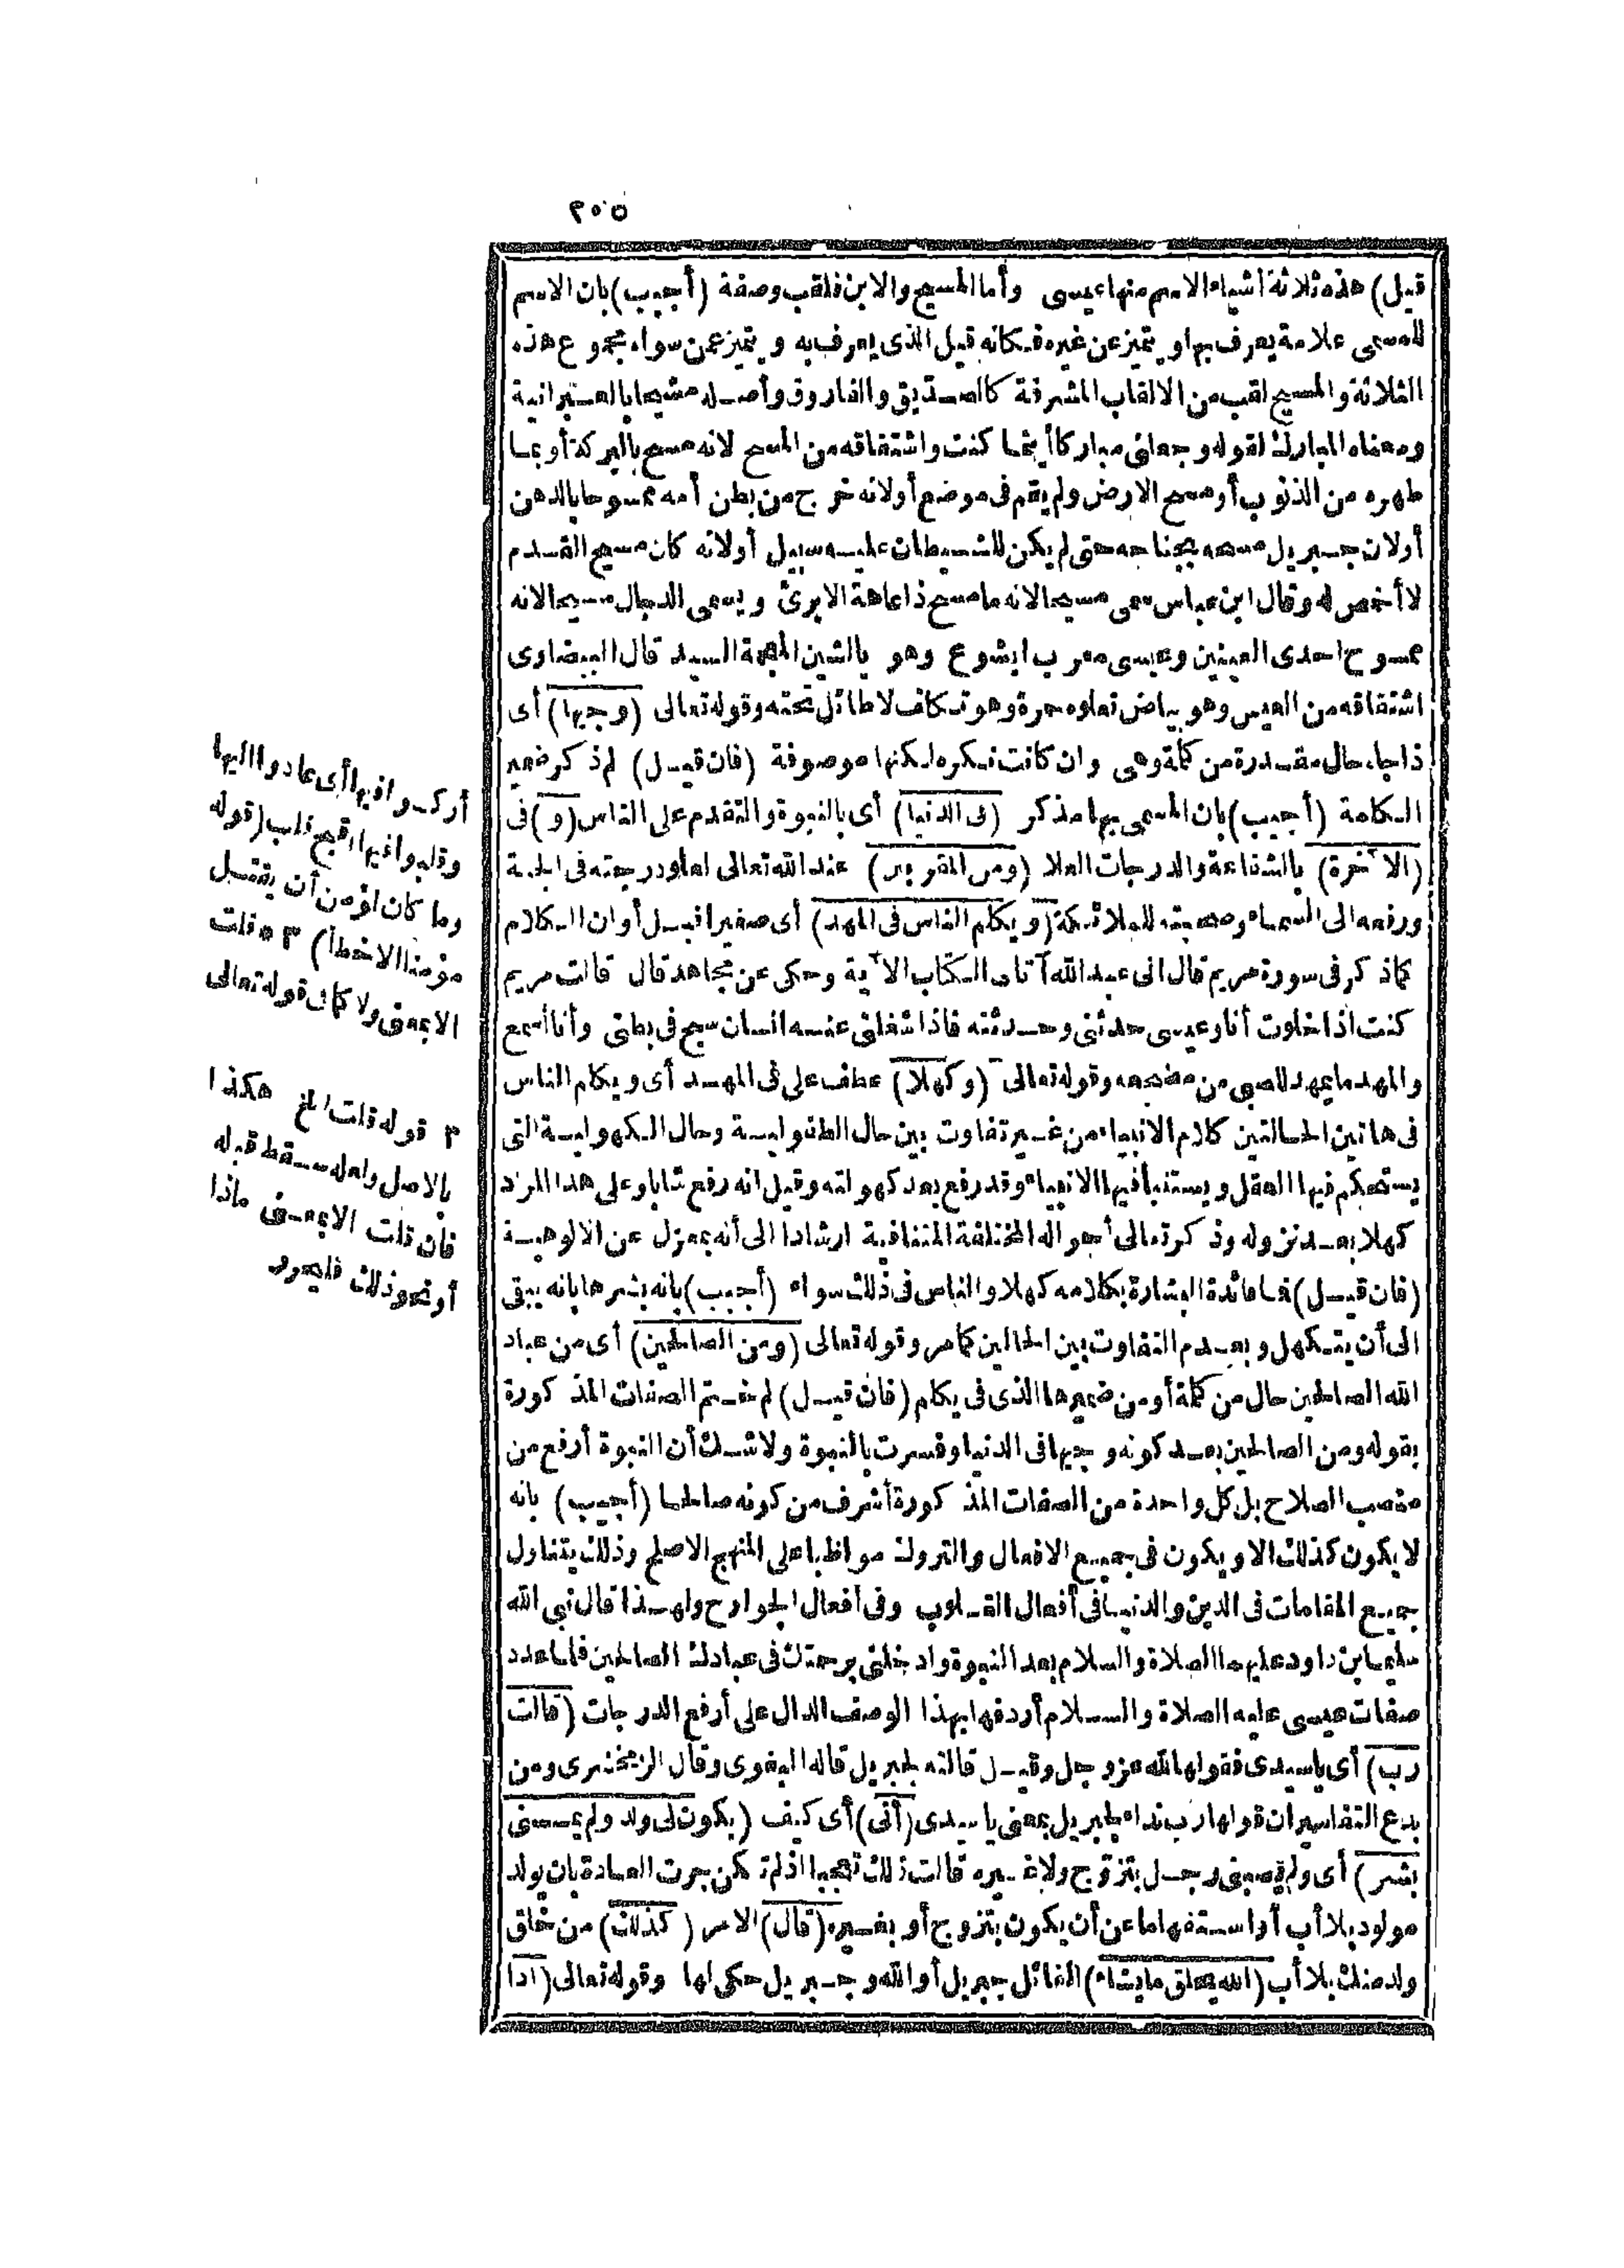 ٢٠٥
قيل) هذه ثلاثة أشياء الاسم منها عيسى وأما المسيح والابن فلقب وصفة (أجيب) بان الاسم
للمسمى علامة يعرف بها ويتميز عن غيره فكانه قيل الذى يعرف به ويتميز عمن سواه مجموع هذه
الثلاثة والمسيح لقب من الالقاب المشرفة كالصديق والفاروق وأصله مشيحا بالعبرانية
ومعناه المبارك لقوله وجعلنى مباركا أينما كنت واشتقاقه من المسح لانه مسح بالبركة أو بما
طهره من الذنوب أو مسح الارض ولم يقم فى موضع أو لانه خرج من بطن أمه ممسوحا بالدهن
أو لان جبريل مسحه بجناحه حتى لم يكن للشيطان عليه سبيل أو لانه كان مسيح القدم
لا أخمص له وقال ابن عباس سمى مسيحا لانه ما مسح ذا عاهة الا برئ ويسمى الدجال مسيحا لانه
ممسوح احدى العينين وعيسى معرب ايشوع وهو بالشين المعجمة السيد قال البيضاوى
اشتقاقه من العيس وهو بياض تعلوه حمرة وهو تكلف لا طائل تحته وقوله تعالى (وجيها) أى
ذا جاه حال مقدرة من كلمة وهى وان كانت نكره لكنها موصوفة (فان قيل) لم ذكر ضمير
الكلمة (أجيب) بان المسمى بها مذكر (فى الدنيا) أى بالنبوة والتقدم على الناس (و) فى
(الآخرة) بالشفاعة والدرجات العلا (ومن المقربين) عند الله تعالى لعلو درجته فى الجنة
ورفعه الى السماء وصحبته للملائكة (ويكلم الناس فى المهد) أى صغيرا قبل أوان الكلام
كما ذكر فى سورة مريم قال انى عبد الله آتانى الكتاب الآية وحكى عن مجاهد قال قالت مريم
كنت اذا خلوت أنا وعيسى حدثنى وحدثته فاذا شغلنى عنه انسان سبح فى بطنى وأنا أسمع
والمهد ما يمهد للصبى من مضجعه وقوله تعالى (وكهلا) عطف على فى المهد أى ويكلم الناس
فى هاتين الحالتين كلام الانبياء من غير تفاوت بين حال الطفولية وحال الكهولية التى
يستحكم فيها العقل ويستنبأ فيها الانبياء وقد رفع بعد كهولته وقيل انه رفع شابا وعلى هذا المراد
كهلا بعد نزوله وذكر تعالى أحواله المختلفة المتنافية ارشادا الى أنه بمعزل عن الالوهية
(فان قيل) فما فائدة البشارة بكلامه كهلا والناس فى ذلك سواء (أجيب) بانه بشرها بانه يبقى
الى أن يتكهل وبعدم التفاوت بين الحالين كما مر وقوله تعالى (ومن الصالحين) أى من عباد
الله الصالحين حال من كلمة أو من ضميرها الذى فى يكلم (فان قيل) لم ختم الصفات المذكورة
بقوله ومن الصالحين بعد كونه وجيها فى الدنيا وفسرت بالنبوة ولا شك أن النبوة أرفع من
منصب الصلاح بل كل واحدة من الصفات المذكورة أشرف من كونه صالحا (أجيب) بانه
لا يكون كذلك الا ويكون فى جميع الافعال والتروك مواظبا على المنهج الاصلح وذلك يتناول
جميع المقامات فى الدين والدنيا فى أفعال القلوب وفى أفعال الجوارح ولهذا قال نبى الله
سليمان بن داود عليهما الصلاة والسلام بعد النبوة وادخلنى برحمتك فى عبادك الصالحين فلما عدد
صفات عيسى عليه الصلاة والسلام أردفها بهذا الوصف الدال على أرفع الدرجات (قالت
رب) أى يا سيدى فقولها لله عز وجل وقيل قالته لجبريل قاله البغوى وقال الزمخشرى ومن
بدع التفاسير ان قولها رب نداء لجبريل بمعنى يا سيدى (أنى) أى كيف (يكون لى ولد ولم يمسسنى
بشر) أى ولم يصبنى رجل بتزوج ولا غيره قالت ذلك تعجبا اذ لم تكن جرت العادة بان يولد
مولود بلا أب أو استفهاما عن أن يكون بتزوج أو بغيره (قال) الامر (كذلك) من خلق
ولد منك بلا أب (الله يخلق ما يشاء) القائل جبريل أو الله وجبريل حكى لها وقوله تعالى (اذا
أركسوا فيها أى عادوا اليها
وقلبوا فيها أقبح قلب (قوله
وما كان لمؤمن أن يقتل
مؤمنا الا خطأ) ٣ قلت
الا بمعنى ولا كما فى قوله تعالى
٣ قوله قلت الخ هكذا
بالاصل ولعله سقط قبله
فان قلت الا بمعنى ماذا
أو نحو ذلك فليحرر